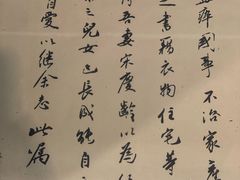 瘁國事不治家產
之書籍衣物住宅等
吾妻宋慶齡以為
之兒女已長成能自
自愛以繼余志此屬